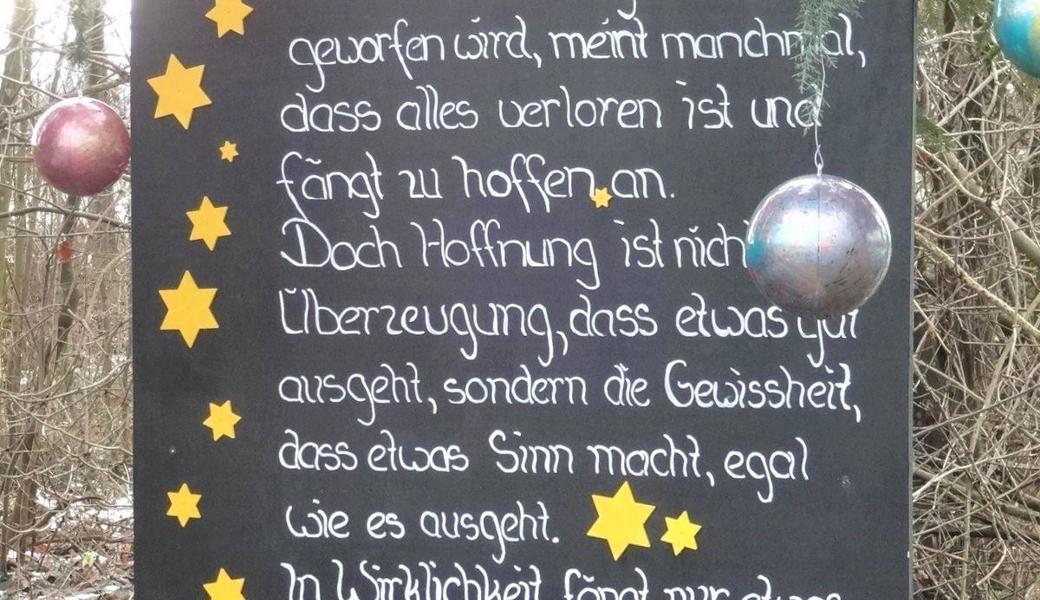 geworfen wird, meint manchmal,
dass alles verloren ist und
fängt zu hoffen an.
Doch Hoffnung ist nich
Überzeugung, dass etwas gut
ausgeht, sondern die Gewissheit,
dass etwas Sinn macht, egal
wie es ausgeht.
In Wirklichkeit fängt nur etwas